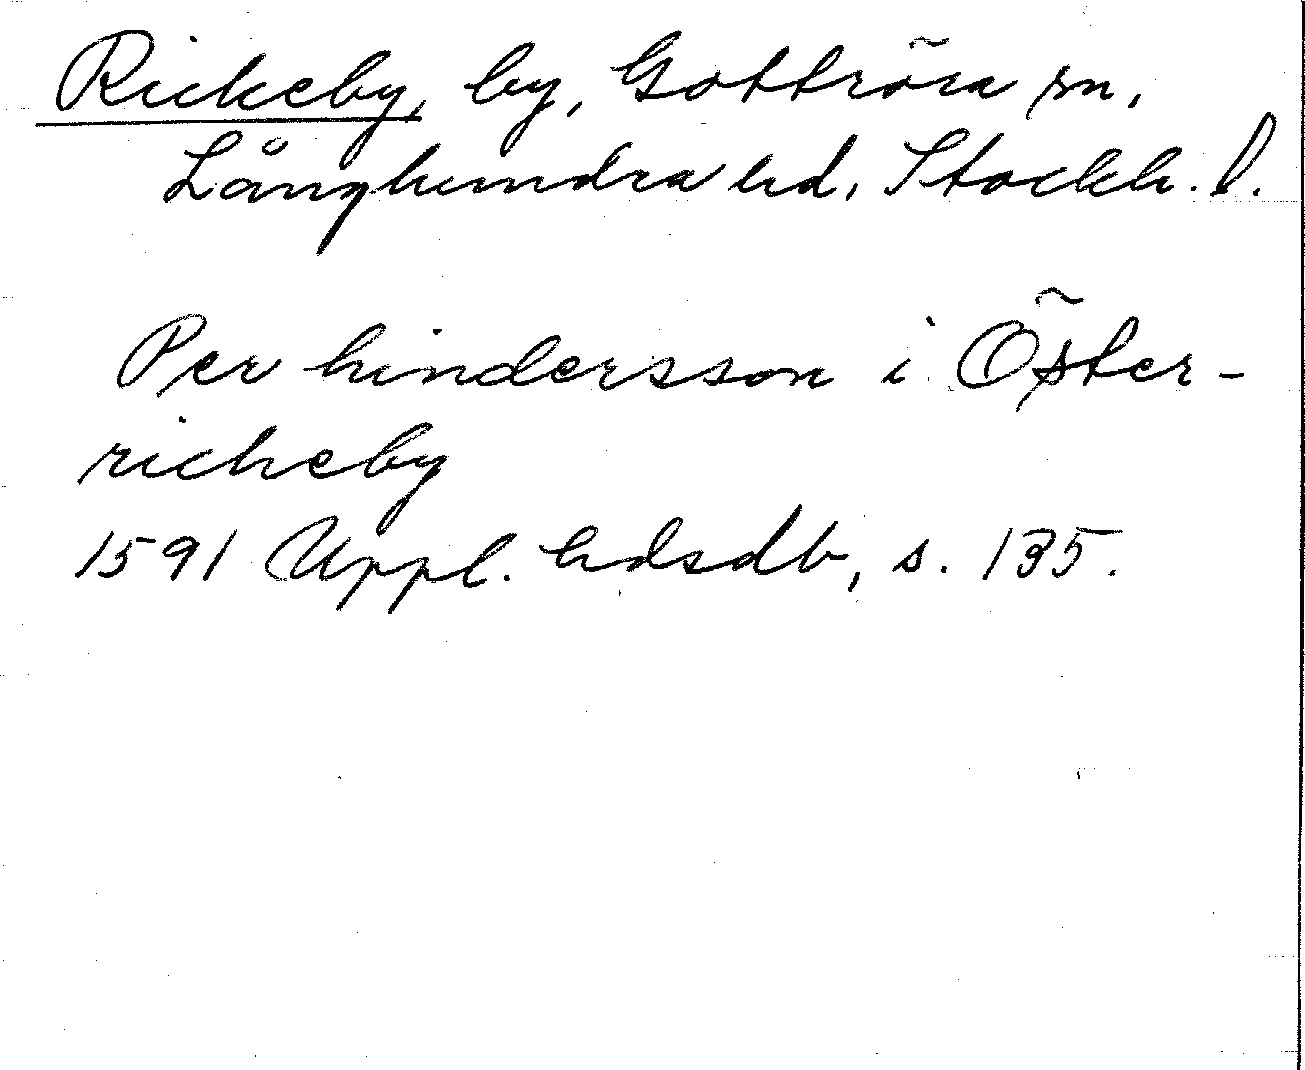 Rickeby, by, Gottröra sn,
Långhundra hd, Stockh. l.
Per hindersson i Öster-
richeby
1591 Uppl. hdsdb, s. 135.